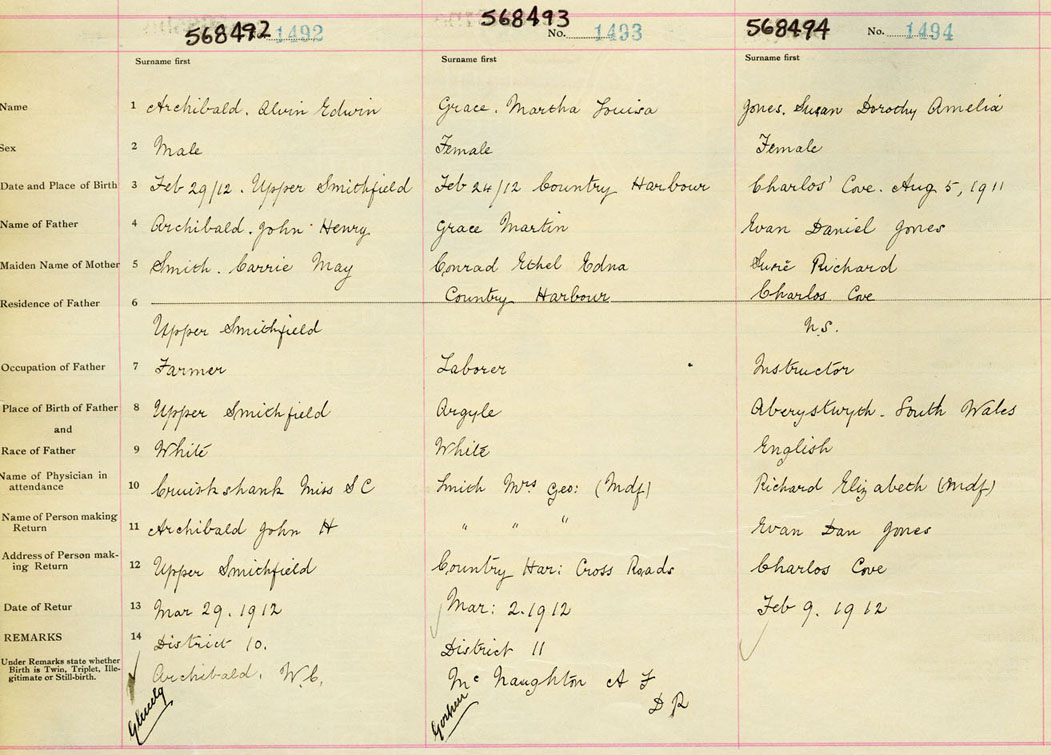 568492 568493 568494
No. 1492 No. 1493 No. 1494
Surname first Surname first Surname first
Name 1 Archibald. Alvin Edwin Grace. Martha Louisa Jones. Susan Dorothy Amelia
Sex 2 Male Female Female
Date and Place of Birth 3 Feb 29/12. Upper Smithfield Feb 24/12 Country Harbour Charlos' Cove. Aug 5, 1911
Name of Father 4 Archibald. John Henry Grace Martin Evan Daniel Jones
Maiden Name of Mother 5 Smith. Carrie May Conrad Ethel Edna Susie Richard
Residence of Father 6 Country Harbour Charlos Cove
Upper Smithfield N.S.
Occupation of Father 7 Farmer Laborer Instructor
Place of Birth of Father 8 Upper Smithfield Argyle Aberystwyth. South Wales
and
Race of Father 9 White White English
Name of Physician in
attendance 10 Cruiskshank Miss S C Smith Mrs Geo: (Mdf) Richard Elizabeth (Mdf)
Name of Person making
Return 11 Archibald John H " " " Evan Dan Jones
Address of Person mak-
ing Return 12 Upper Smithfield Country Har: Cross Roads Charlos Cove
Date of Retur 13 Mar 29. 1912 Mar: 2. 1912 Feb 9. 1912
REMARKS 14 District 10. District 11
Under Remarks state whether
Birth is Twin, Triplet, Ille-
gitimate or Still-birth.
Archibald. W.C. McNaughton A F
D R
Glenelg Goshen